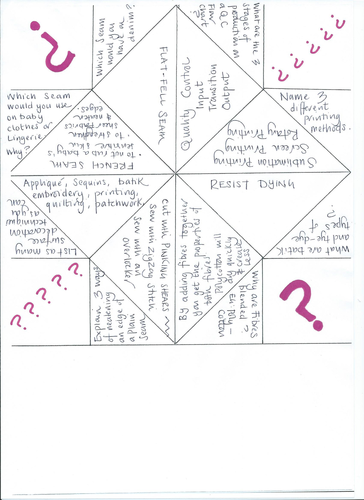 Which Seam
would you
have on
denim?
FLAT-FELL SEAM
Quality Control
Input
Transition
Output
What are the 3
stages of
production on
a QC
Flow
chart?
Which Seam
would you use
on baby
clothes or
Lingerie?
why?
FRENCH SEAM
To not rub a baby's
sensitive skin.
To strengthen
sheer fabrics
& neaten
edges.
Name 3
different
printing
methods.
Sublimation Printing
Screen Printing
Rotary Printing
Appliqué, Sequins, batik
embroidery, printing,
quilting, patchwork
List as many
surface
decoration
technique
as you
can
RESIST DYING
What are batik
and tye-dye
types of
?
Explain 3 ways
of neatening
an edge of
a plain
Seam
Cut with PINKING SHEARS
Sew with zigzag stitch
Sew with an
overlocker
Why are Fibres
blended?
By adding fibres together
can get the properties of
both!
Eg Poly-
cotton
Polycotton will
crease
less!
?
? ? ? ? ?
? ? ? ? ?
?